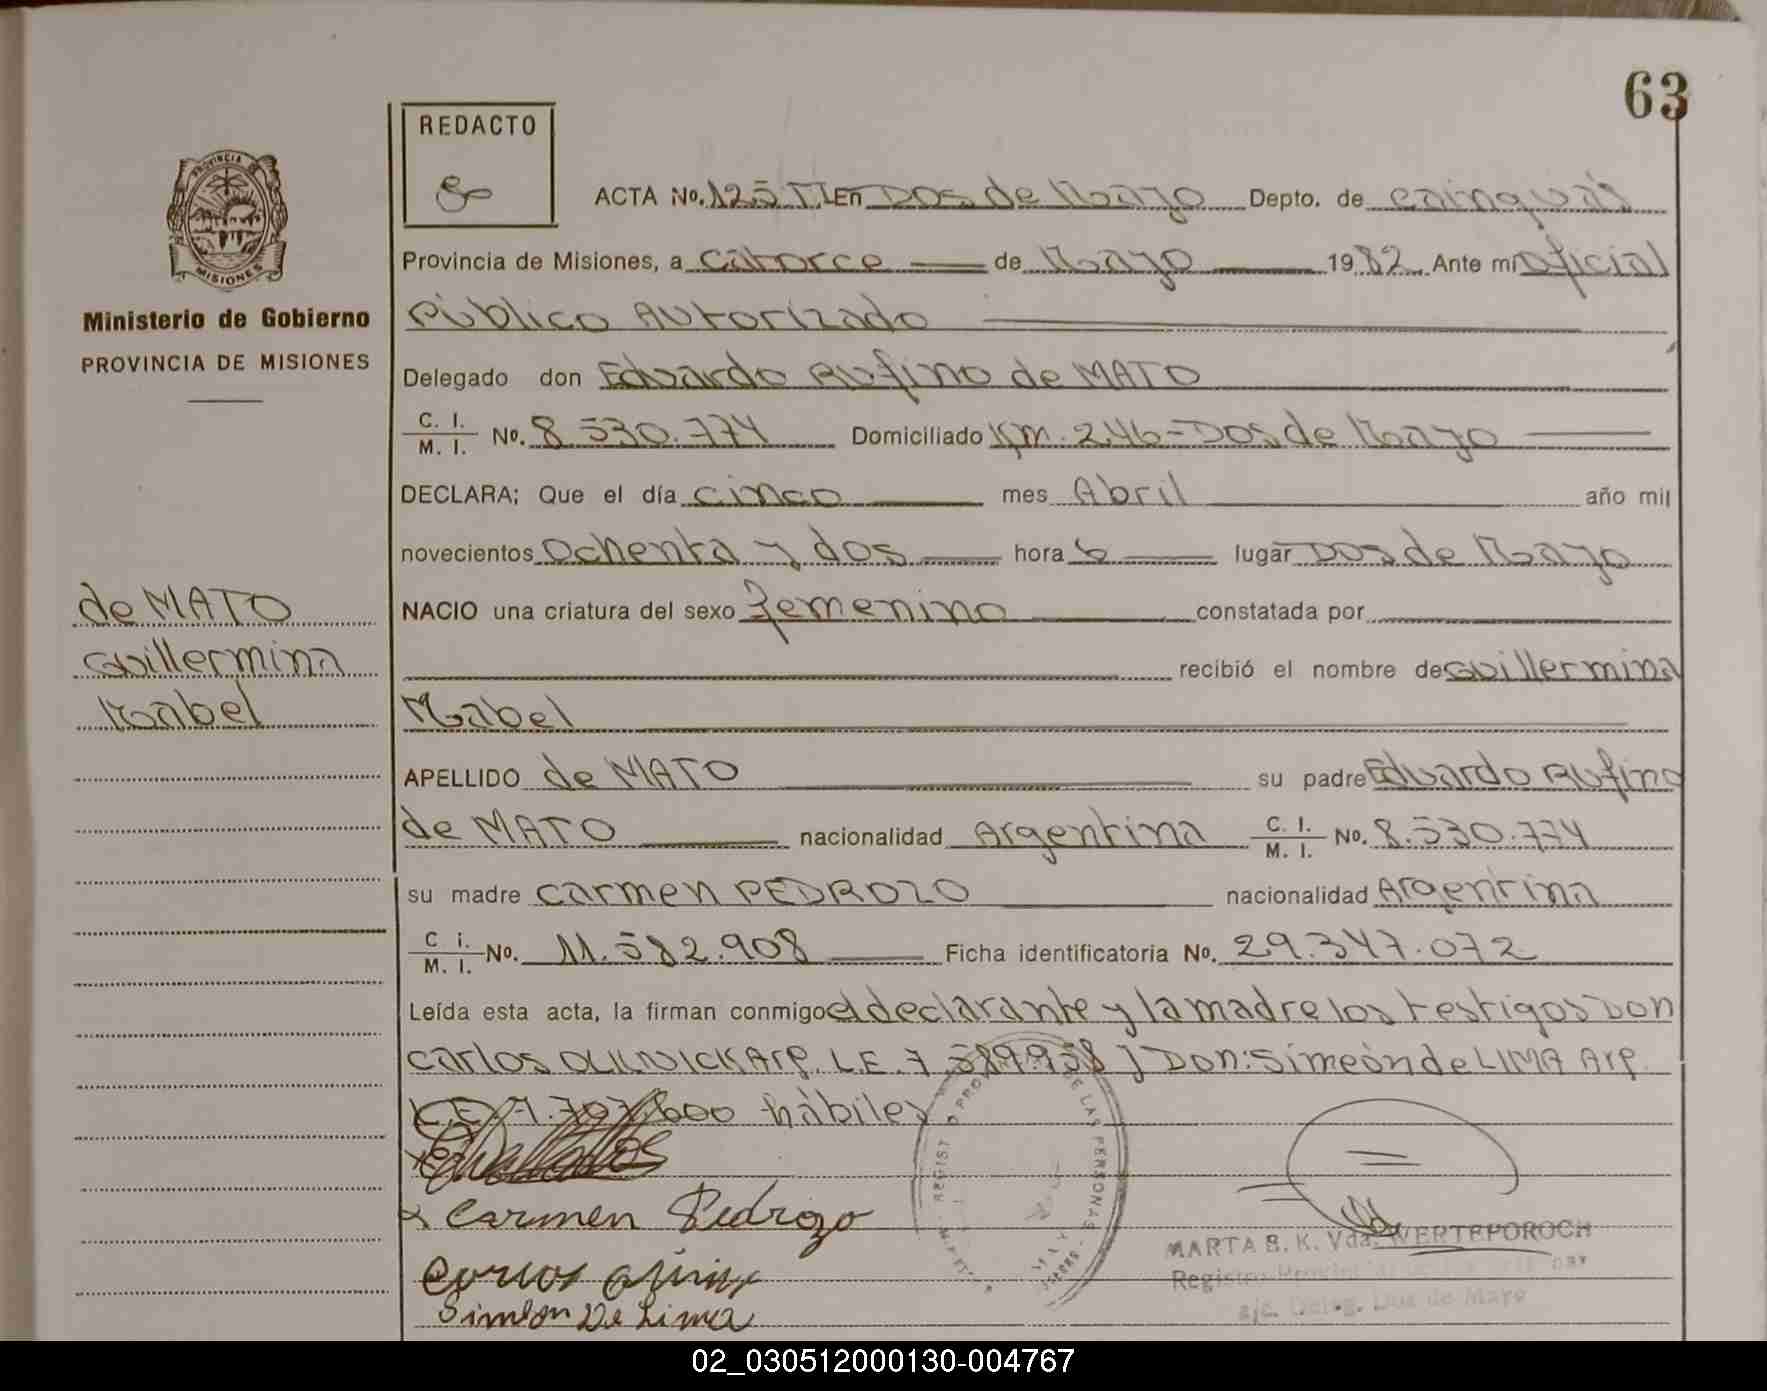 63
REDACTO
PROVINCIA
MISIONES
Ministerio de Gobierno
PROVINCIA DE MISIONES
ACTA No. 125 TI En Dos de Mayo Depto. de Cainguás
Provincia de Misiones, a catorce de Mayo 1982 Ante mi Oficial
Público Autorizado
Delegado don Eduardo Rufino de MATO
C. I. M. I. No. 8.530.774 Domiciliado Km. 246-Dos de Mayo
DECLARA; Que el día cinco mes Abril año mil
novecientos ochenta y dos hora 6 lugar Dos de Mayo
NACIO una criatura del sexo femenino constatada por
recibió el nombre de Guillermina
Mabel
APELLIDO de MATO su padre Eduardo Rufino
de MATO nacionalidad Argentina C. I. M. I. No. 8.530.774
su madre Carmen PEDROZO nacionalidad Argentina
C i. M. I. No. 11.582.908 Ficha identificatoria No. 29.347.072
Leída esta acta, la firman conmigo el declarante y la madre los testigos Don
Carlos Arg. L.E. 7.589.958 y Don: Simeón de LIMA Arg.
L.E. 7.707.600 hábiles
de MATO
Guillermina
Mabel
Carmen Pedrozo
Carlos
Simeon De Lima
DE LAS PERSONAS
MARTA S. K. Vda. WERTEPOROCH
Registro Provincial de las
a/c. Deleg. Dos de Mayo
02_030512000130-004767